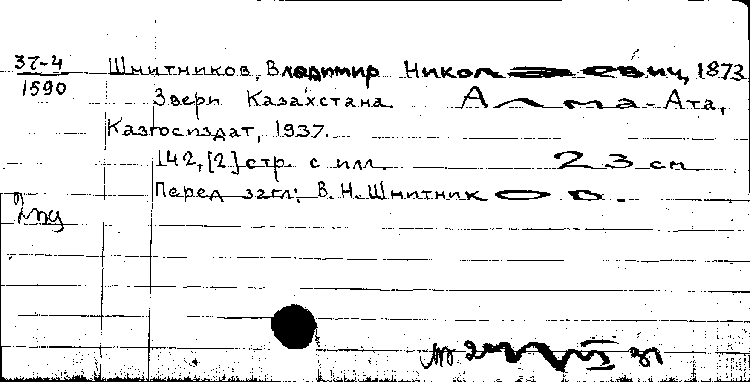 37-4
1590
Шнитников, Владимир Николаевич, 1873
Звери Казахстана. Алма-Ата,
Казгосиздат, 1937.
142, [2] стр. с илл. 23 см
Перед загл: В. Н. Шнитников.